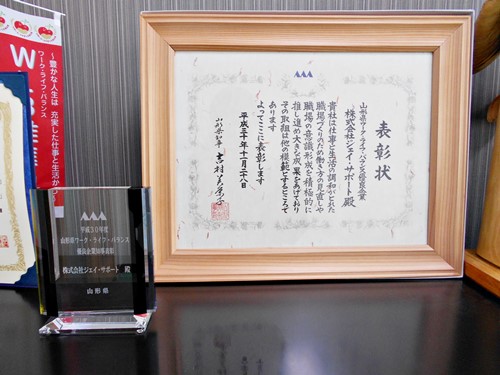 表彰状
山形県ワーク・ライフ・バランス優良企業
株式会社ジェイ・サポート殿
貴社は仕事と生活の調和がとれた
職場づくりのため働き方の見直しや
職場の意識形成を積極的に
推し進め大きな成果をあげており
その取組は他の模範とするところで
あります
よってここに表彰します
平成三十年十一月二十八日
山形県知事 吉村美栄子
平成30年度
山形県ワーク・ライフ・バランス
優良企業知事表彰
株式会社ジェイ・サポート 殿
山形県
～豊かな人生は 充実した仕事と生活か
ワーク・ライフ・バランス
W